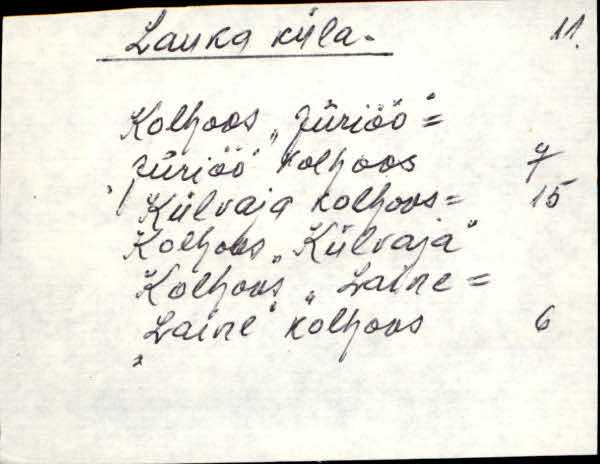 Lauka küla. 11.
Kolhoos „Jüriöö"=
Jüriöö" kolhoos 7
Külvaja kolhoos= 15
Kolhoos „Külvaja"
Kolhoos „Laine=
„Laine" kolhoos 6